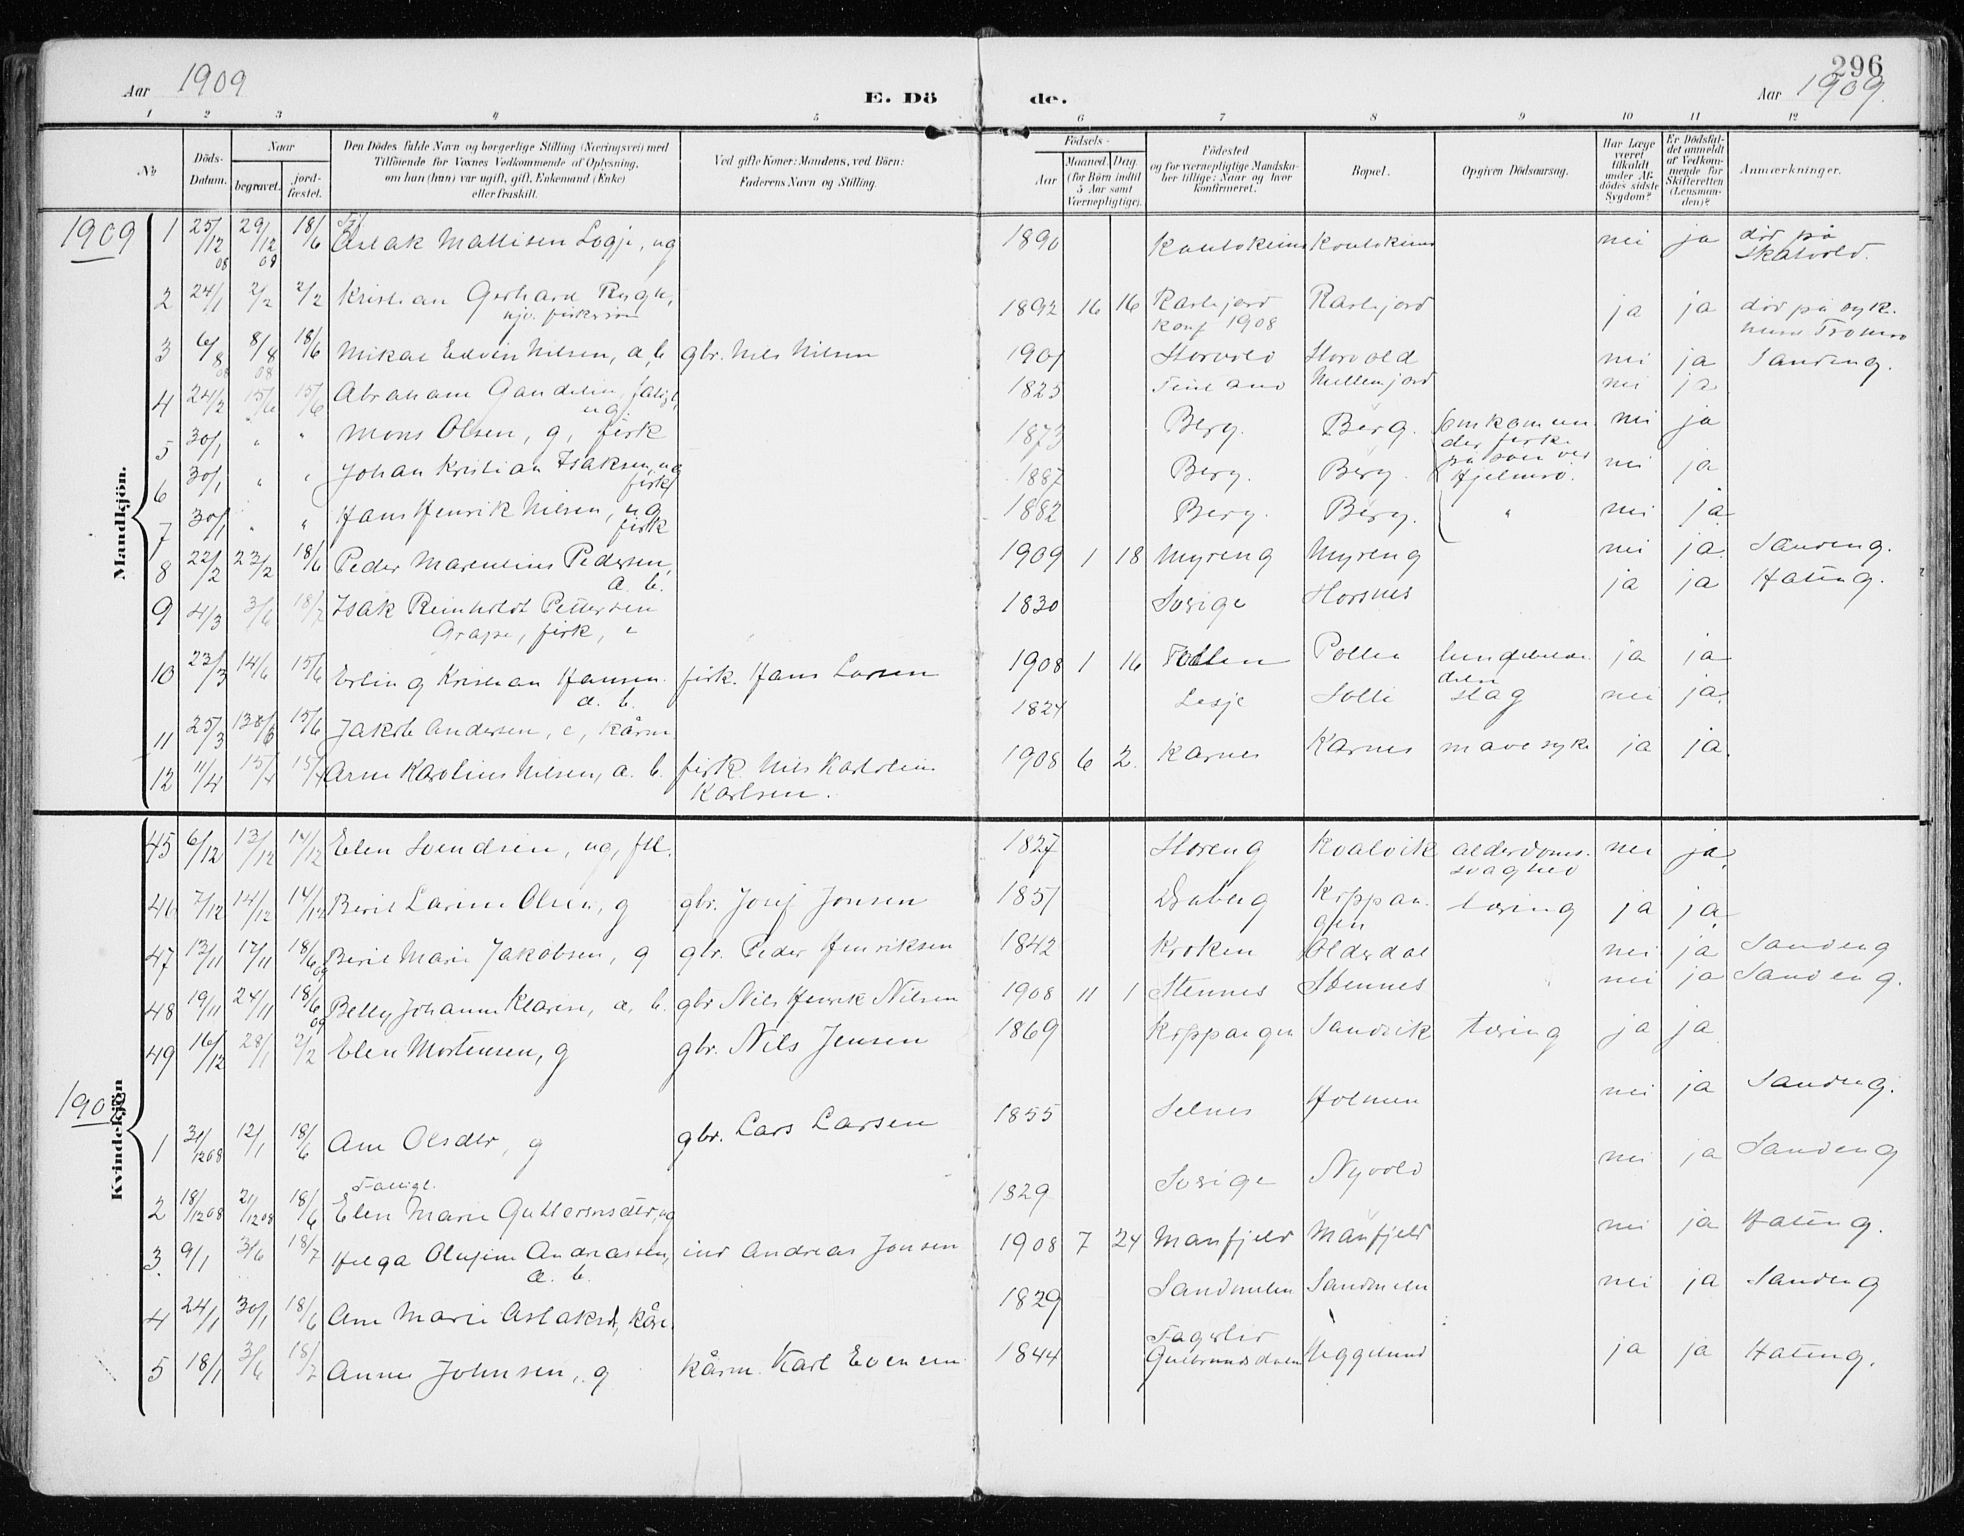 296
Aar 1909 E. Dö de. Aar 1909.
1 2 3 4 5 6 7 8 9 10 11 12
No Döds-Datum. Naar begravet. jord-fæstet. Den Dödes fulde Navn og borgerlige Stilling (Næringsvei) med Tilföiende for Voxnes Vedkommende af Oplysning, om han (hun) var ugift, gift, Enkemand (Enke) eller fraskilt. Ved gifte Koner: Mandens, ved Börn: Faderens Navn og Stilling. Födsels- Aar Maaned. Dag. (for Börn indtil 5 Aar samt Værnepligtige). Födested og for værnepligtige Mandskaber tillige: Naar og hvor konfirmeret. Bopæl. Opgiven Dödsaarsag. Har Læge været tilkaldt under Afdödes sidste Sygdom? Er Dödsfaldet anmeldt af Vedkommende for Skifteretten (Lensmanden)? Anmærkninger.
Mandkjön.
1909 1 25/12 08 29/12 08 18/6 Aslak Mattisen Logje, ug 1890 Koutokeino Koutokeino nei ja död på Skatvold.
2 24/1 2/2 2/2 Kristian Gerhard Rygh, 1892 16 16 Karlsjord konf 1908 ja ja död på syk.
3 6/8 08 8/8 08 18/6 Mikal Edvin Nilsen, a, b gbr. Nils Nilsen 1901 Storvold Storvold nei ja Sandeng.
4 24/2 15/6 15/6 Abraham ug. 1825 nei ja
5 30/1 " " Mons Olsen, g, fisk 1873 Berg. Berg. Omkom under fiske nei ja
6 30/1 " " Johan Kristian Isaksen, ug fisk 1887 Berg. Berg. Hjelmsö. nei ja
7 30/1 " " Hans Henrik Nilsen, ug fisk 1882 Berg. Berg. " nei ja
8 22/2 23/2 18/6 Peder Marenius Pedersen, a. b. 1909 1 18 Myreng Myreng nei ja Sandeng.
9 4/3 3/6 18/7 Isak Reinholdt Pettersen Grape, fisk, e 1830 Sverige Horsnes ja ja Hateng.
10 23/3 14/6 15/6 Erling Kristian Hansen a. b. fisk. Hans Larsen 1908 1 16 Pollen Pollen ja ja
11 25/3 15/6 Jakob Andersen, e, kårm 1824 Lesje Solli slag nei ja.
12 11/4 15/7 15/7 Arne Karolius Nilsen, a. b. fisk. Nils Karlsen. 1908 6 2 Karnes Karnes mavesyke ja ja.
Kvindekjön
45 6/12 13/12 14/12 Elen Svendsen, ug, fll. 1827 Storeng Kvalvik alderdoms-svaghed nei ja.
46 7/12 14/12 14/12 Berit Larine Olsen, g gbr. Josef Jonsen 1851 Koppangen tæring ja ja
47 13/11 17/11 18/6 09 Berit Marie Jakobsen, g gbr. Peder Henriksen 1842 Kroken Olderdal nei ja Sandeng
48 19/11 24/11 18/6 09 Betty Johanne Klarise, a, b. gbr Nils Henrik Nilsen 1908 11 1 Stennes Stennes nei ja Sandeng.
49 16/12 28/1 2/2 Elen Mortensen, g gbr. Nils Jensen 1869 Koppangen Sandvik tæring ja ja
1909 1 31/12 08 12/1 18/6 Ane Olsdtr, g gbr. Lars Larsen 1855 Selnes Holmen nei ja Sandeng.
2 18/12 08 21/12 08 18/6 Fattigl. Elen Marie Guttormsdtr, ug 1829 Sverige Nyvold nei ja Sandeng
3. 9/1 3/6 18/7 Helga Olufine Andreassen, a. b. ind Andreas Jonsen 1908 7 24 Manfjeld Manfjeld nei ja Hateng.
4 24/1 30/1 18/6 Ane Marie Aslaksd, kåre. 1829 Sandmelen Sandmelen nei ja Sandeng
5 18/1 3/6 18/7 Anne Johnsen, g kårm. Karl Evensen 1844 Fagerlid Gulbrandsdalen Heggelund ja ja Hateng.